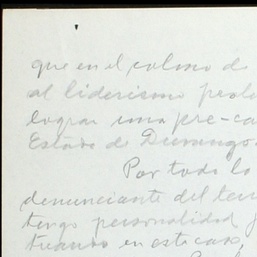 que en el colmo de
al liderismo
lograr una pre-ca
Estado de Durango.
Por todo lo
denunciante del
tengo personalidad
tuando en este caso,